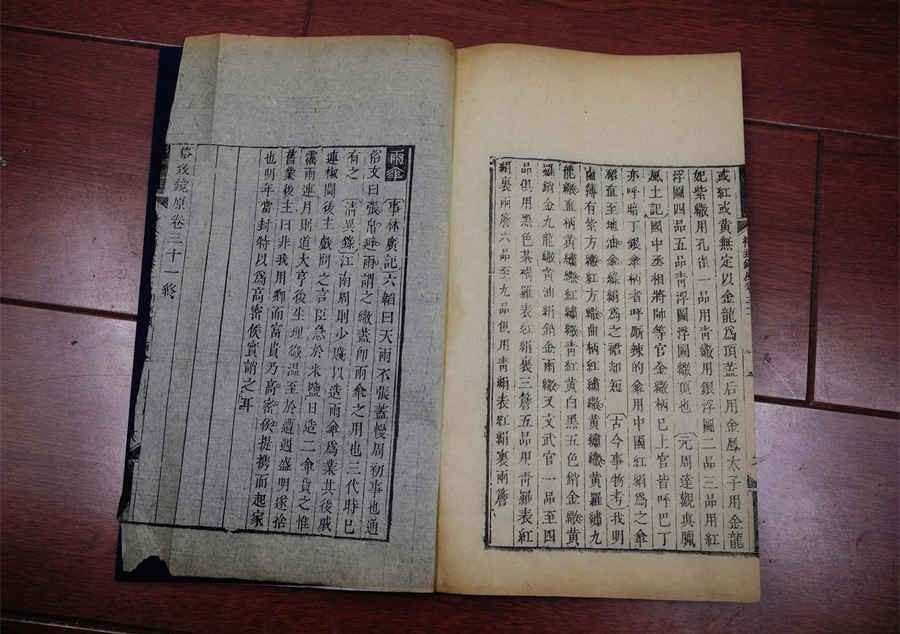 或紅或黃無定以金龍爲頂蓋后用金鳳太子用金龍
妃紫繖用孔雀一品用青繖用銀浮圖二品三品用紅
浮圖四品五品青浮圖浮圖繖頂也元周達觀真臘
風土記國中丞相將帥等官金繖柄已上官皆呼巴丁
亦呼暗丁銀傘柄者呼厮辣的傘用中國紅絹爲之傘
裙直至地油傘綠絹爲之裙却短古今事物考我明
鹵簿有紫方繖紅方繖曲柄紅繡繖黃繡繖黃羅繡九
龍繖直柄黃繡繖紅繡繖青紅黃白黑五色銷金繖黃
羅銷金九龍繖黃油絹銷金雨繖又文武官一品至四
品俱用黑色茶褐羅表紅絹裏三簷五品用青羅表紅
絹裏兩簷六品至九品俱用青絹表紅絹裏兩簷
雨傘 事林廣記六韜曰天雨不張蓋幔周初事也通
俗文曰張帛避雨謂之繖蓋卽雨傘之用也三代時已
有之 清異錄江南周則少賤以造雨傘爲業其後戚
連椒闥後主戲問之言臣急於米鹽日造二傘貨之惟
霪雨連月則道大亨後生理微溫至於遭遇盛明遂捨
舊業後主曰非我用卿而富貴乃高密侯提携而起家
也明年當封特以爲高密侯實誚之耳
格致鏡原卷三十一終